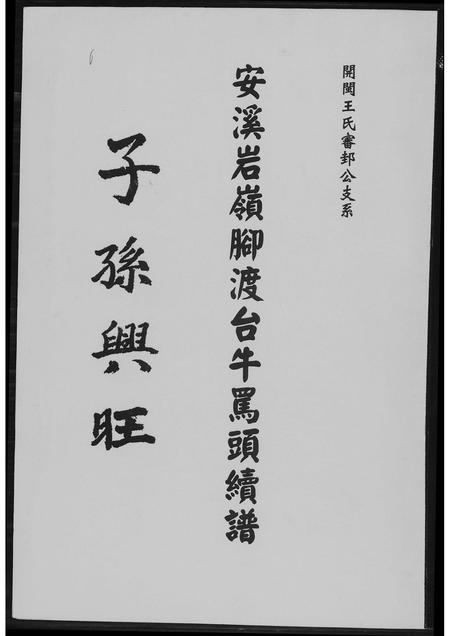 開閩王氏審邽公支系
安溪岩嶺腳渡台牛罵頭續譜
子孫興旺